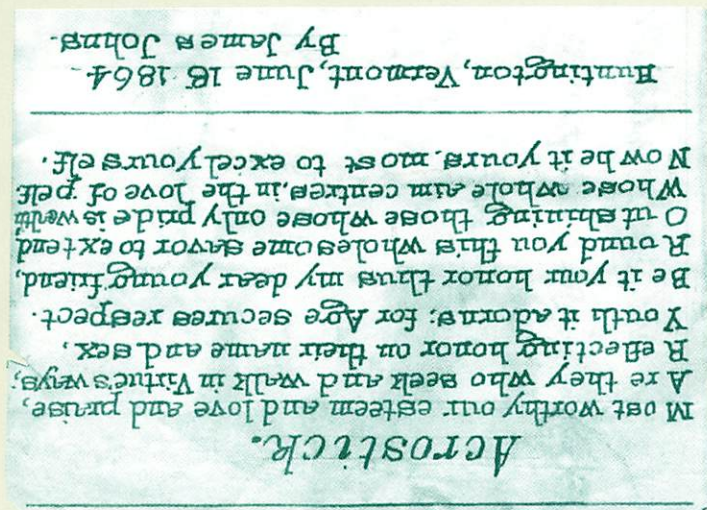 Acrostick.
Most worthy our esteem and love and praise,
Are they who seek and walk in Virtue's ways;
Reflecting honor on their name and sex,
Youth it adorns; for Age secures respect.
Be it your honor thus my dear young friend,
Round you this wholesome savor to extend
Outshining those whose only pride is wealth
Whose whole aim centres, in the love of pelf.
Now be it yours, most to excel yourself.
Huntington, Vermont, June 18 1864.
By James Johns.